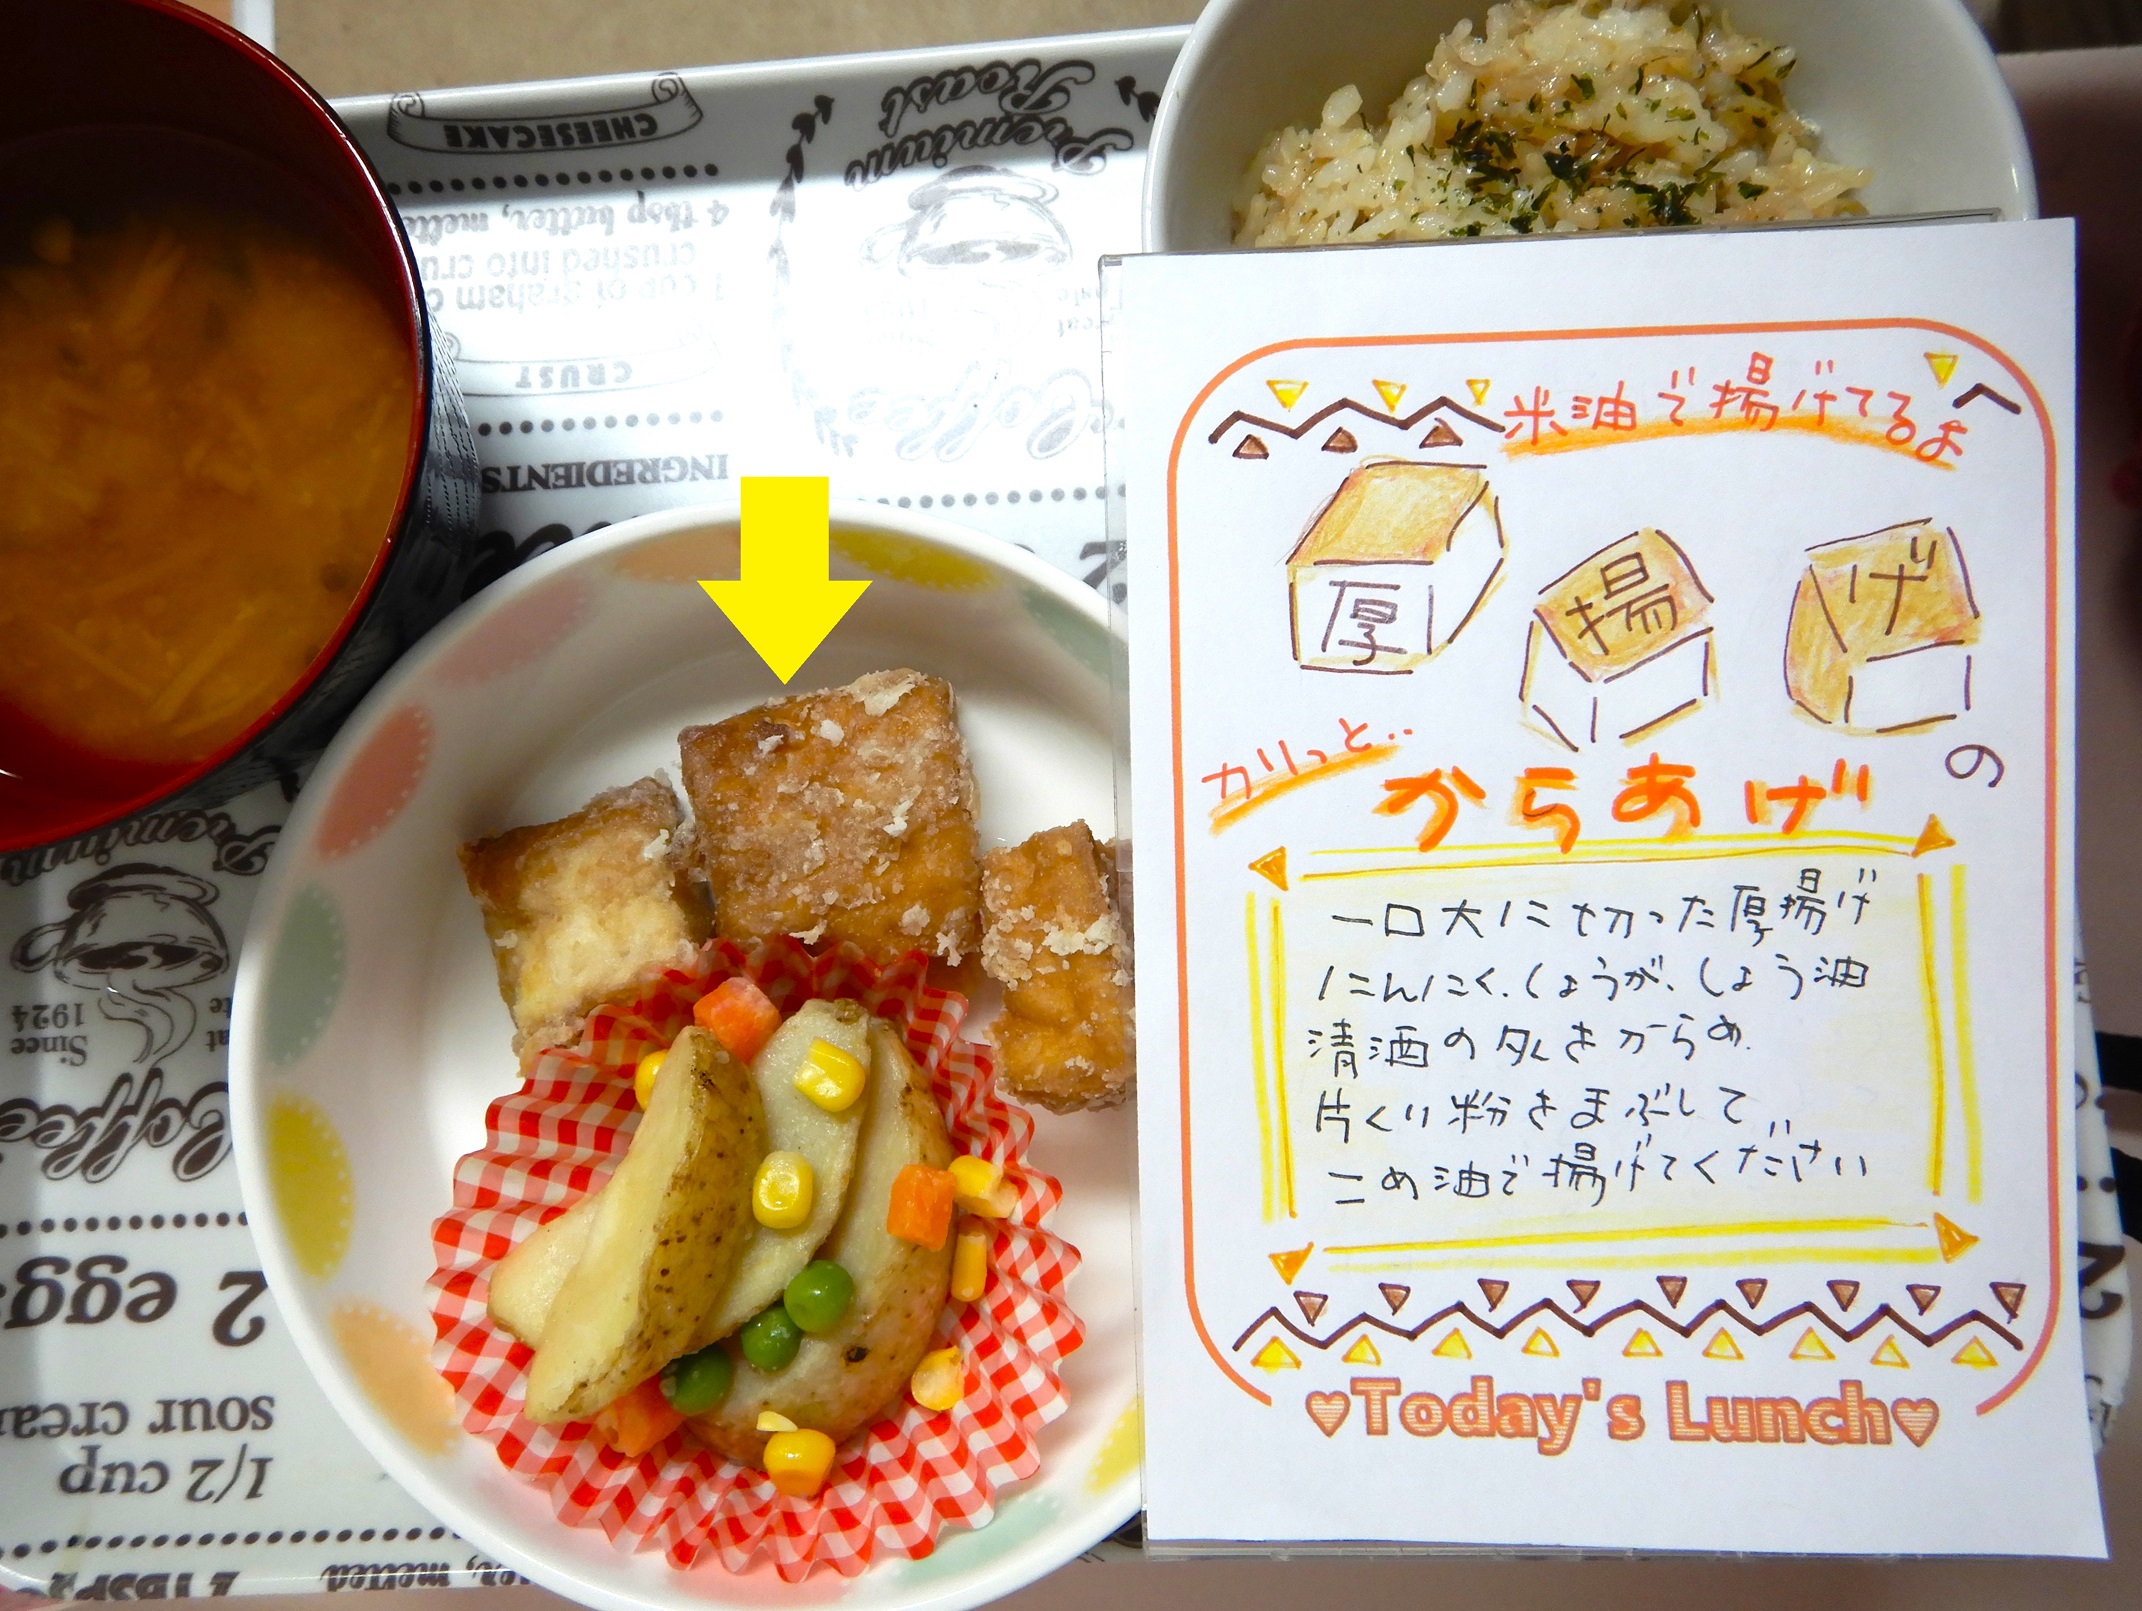 CHEESECAKE
4 tbsp butter, melte
crushed into cru
1 cup of graham c
CRUST
INGREDIENTS
Premium
Roast
Coffee
Premium
Since
1924
Coffee
2 eggs
sour crea
1/2 cup
2 TBSP
melted
米油で揚げてるよ
厚揚げの
カリっと‥
からあげ
一口大に切った厚揚げ
にんにく、しょうが、しょう油
清酒の タレをからめ、
片くり粉をまぶして、
こめ油で揚げてください
♥Today's Lunch♥